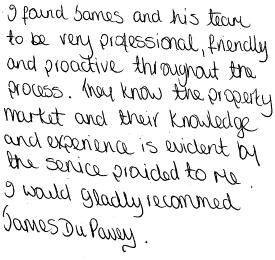 I found James and his team
to be very professional, friendly
and proactive throughout the
process. They know the property
market and their knowledge
and experience is evident by
the service provided to me.
I would gladly recommed
James Du Pavey.